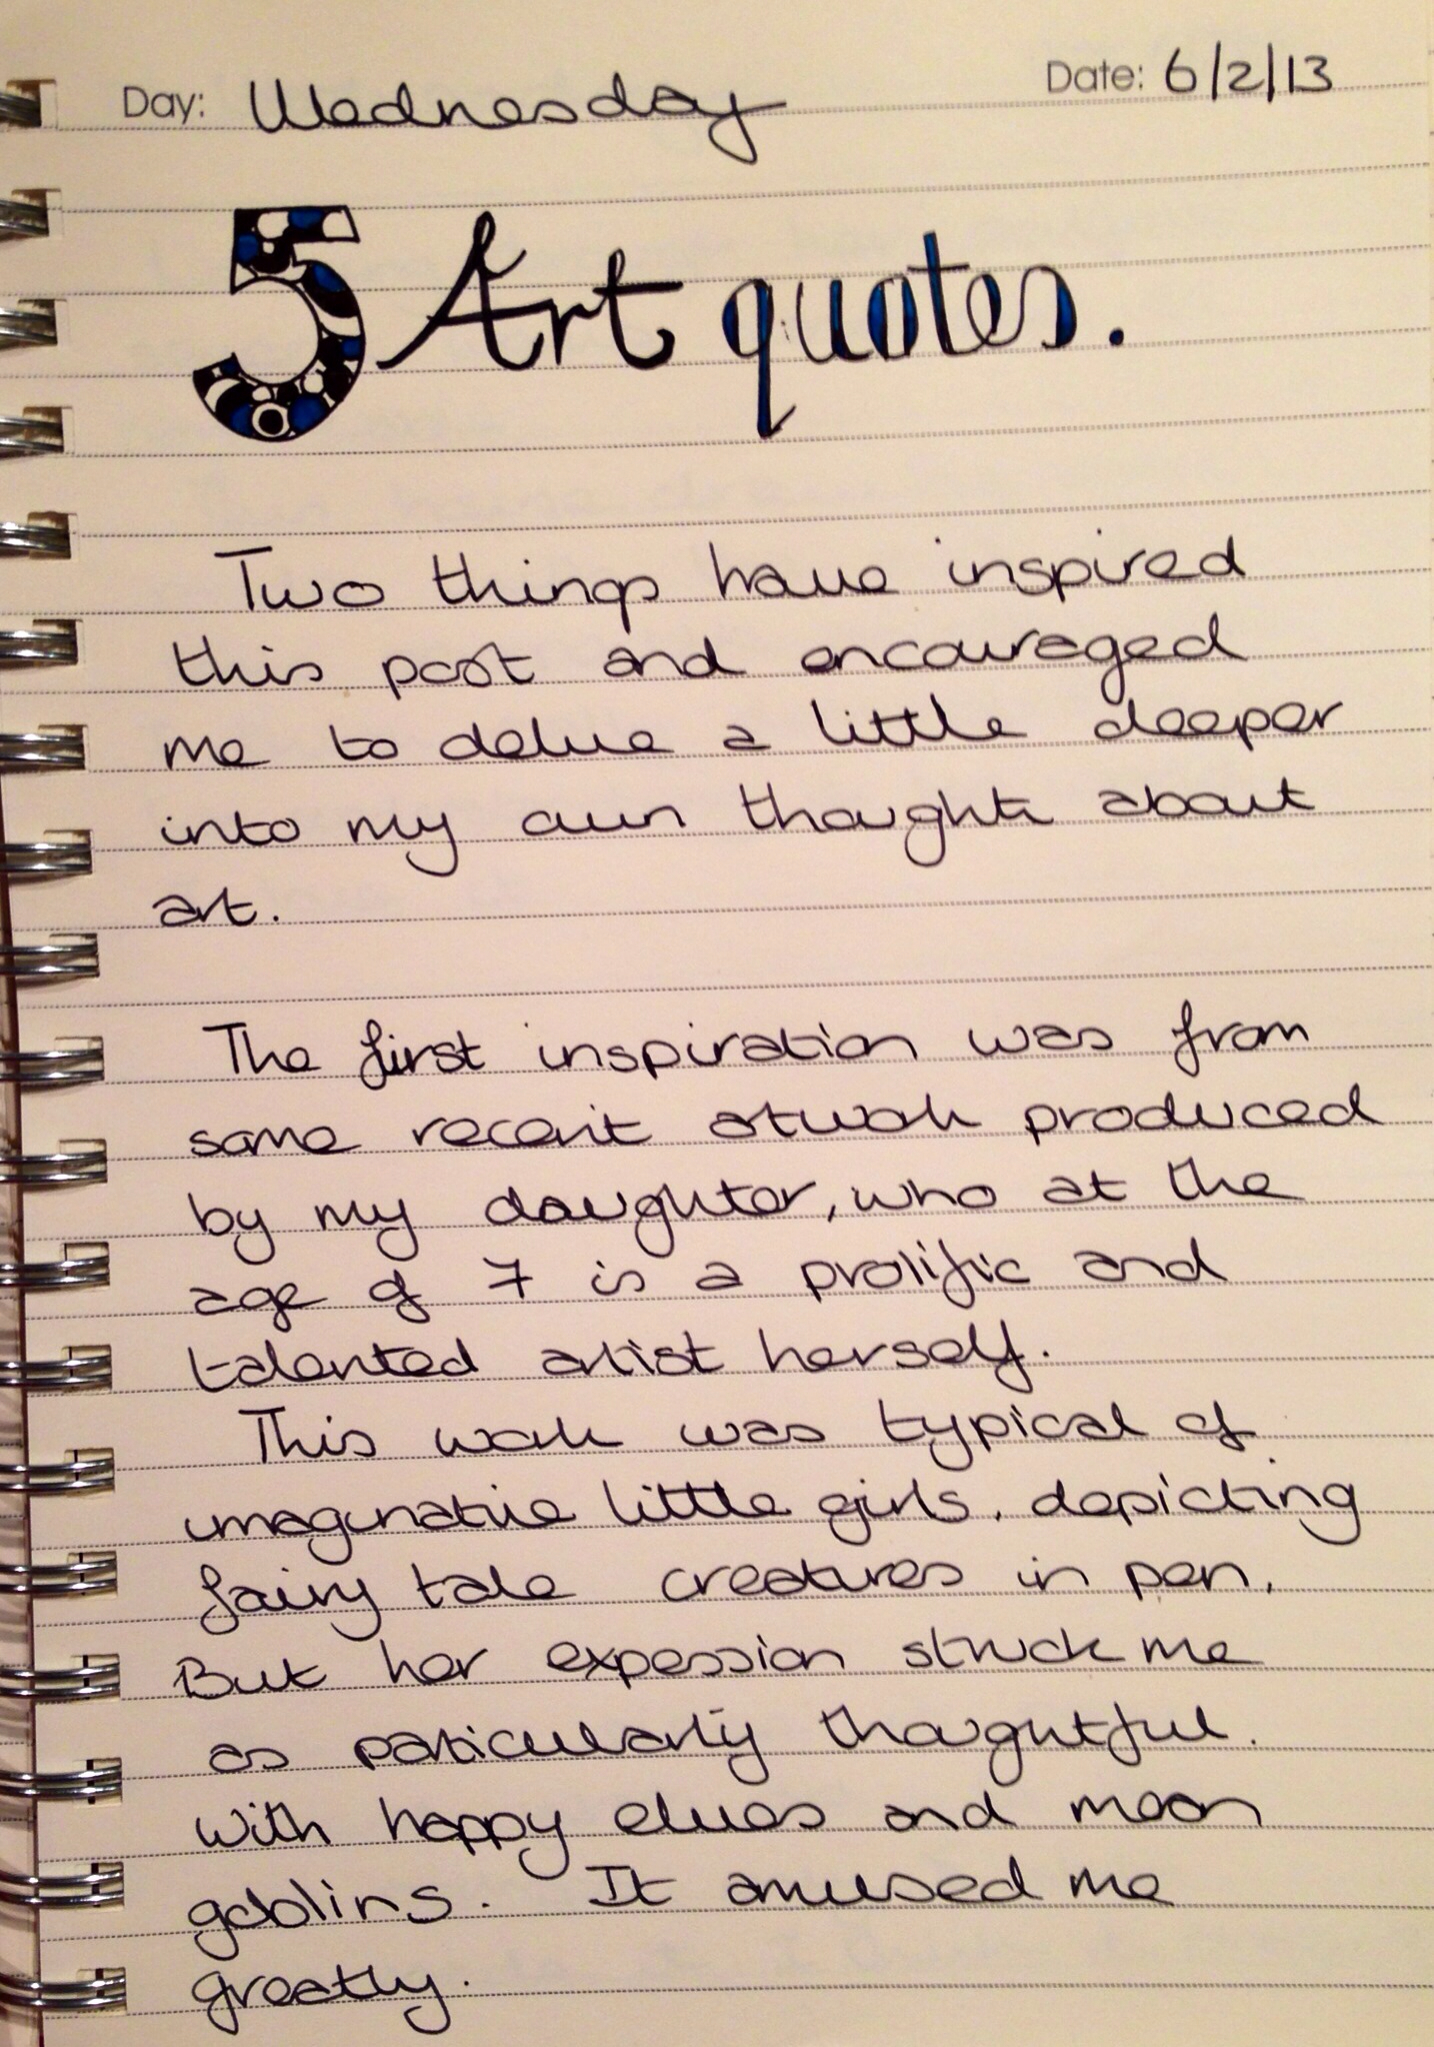 Day: Wednesday Date: 6/2/13
5 Art quotes.
Two things have inspired
this post and encouraged
me to delve a little deeper
into my own thoughts about
art.
The first inspiration was from
some recent artwork produced
by my daughter, who at the
age of 7 is a prolific and
talented artist herself.
This work was typical of
imaginative little girls, depicting
fairy tale creatures in pen.
But her expession struck me
as particularly thoughtful.
with happy elves and moon
goblins. It amused me
greatly.